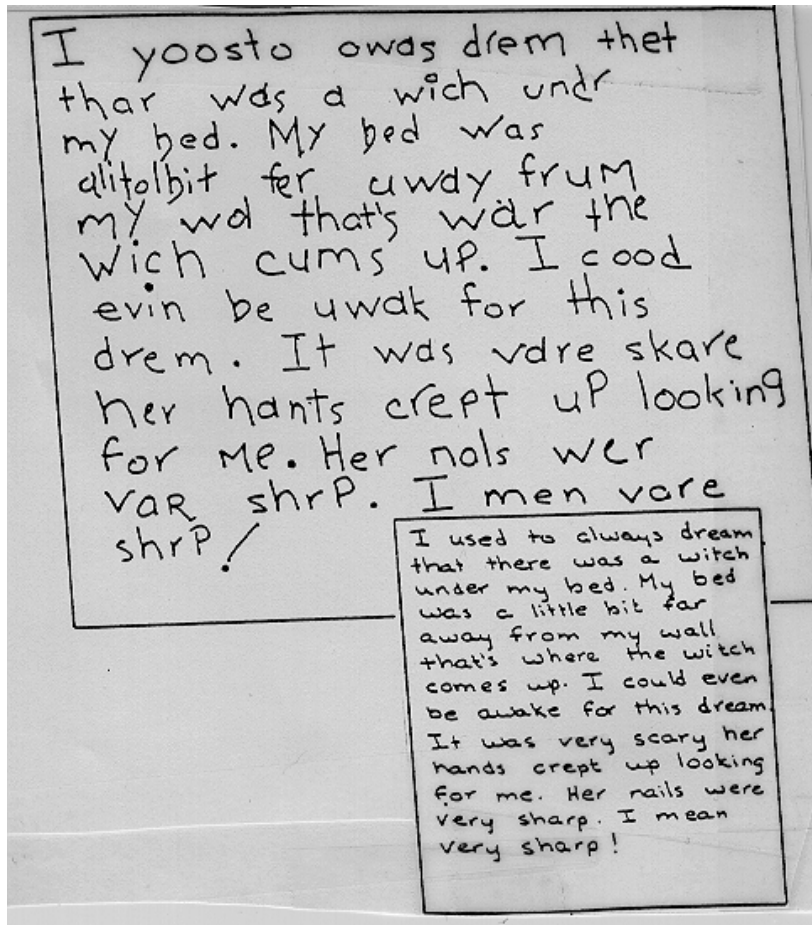 I yoosto owas drem thet
thar was a wich undr
my bed. My bed was
alitolbit fer uway frum
my wol that's war the
wich cums up. I cood
evin be uwak for this
drem. It was vare skare
her hants crept up looking
for me. Her nals wer
vaR shrP. I men vare
shrP!
I used to always dream
that there was a witch
under my bed. My bed
was a little bit far
away from my wall
that's where the witch
comes up. I could even
be awake for this dream.
It was very scary her
hands crept up looking
for me. Her nails were
very sharp. I mean
very sharp!